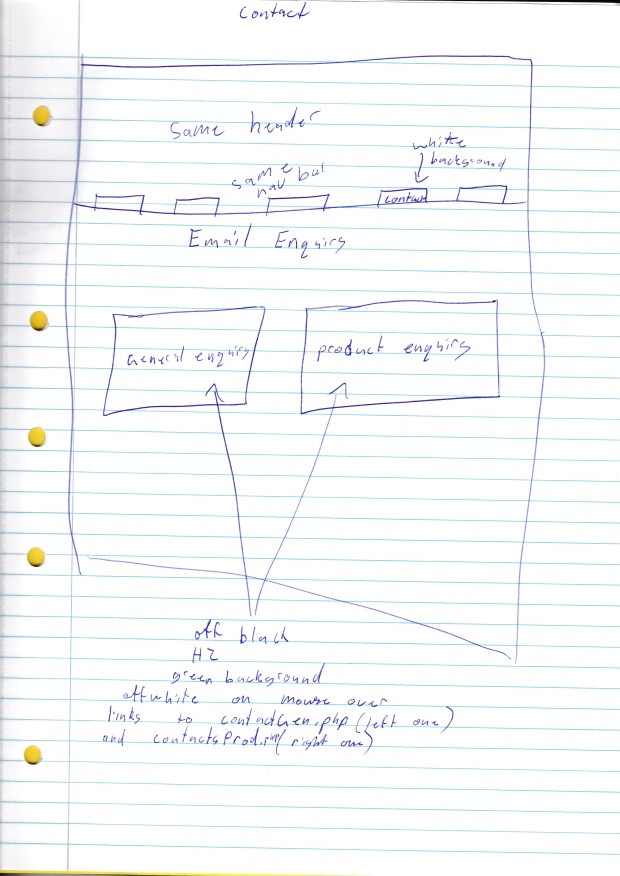 contact
same header
white
background
same
nav bar
contact
Email Enquirs
General enquirs
product enquirs
off black
H2
green background
offwhite on mouse over
links to contactGen.php (left one)
and contactsProd.php (right one)